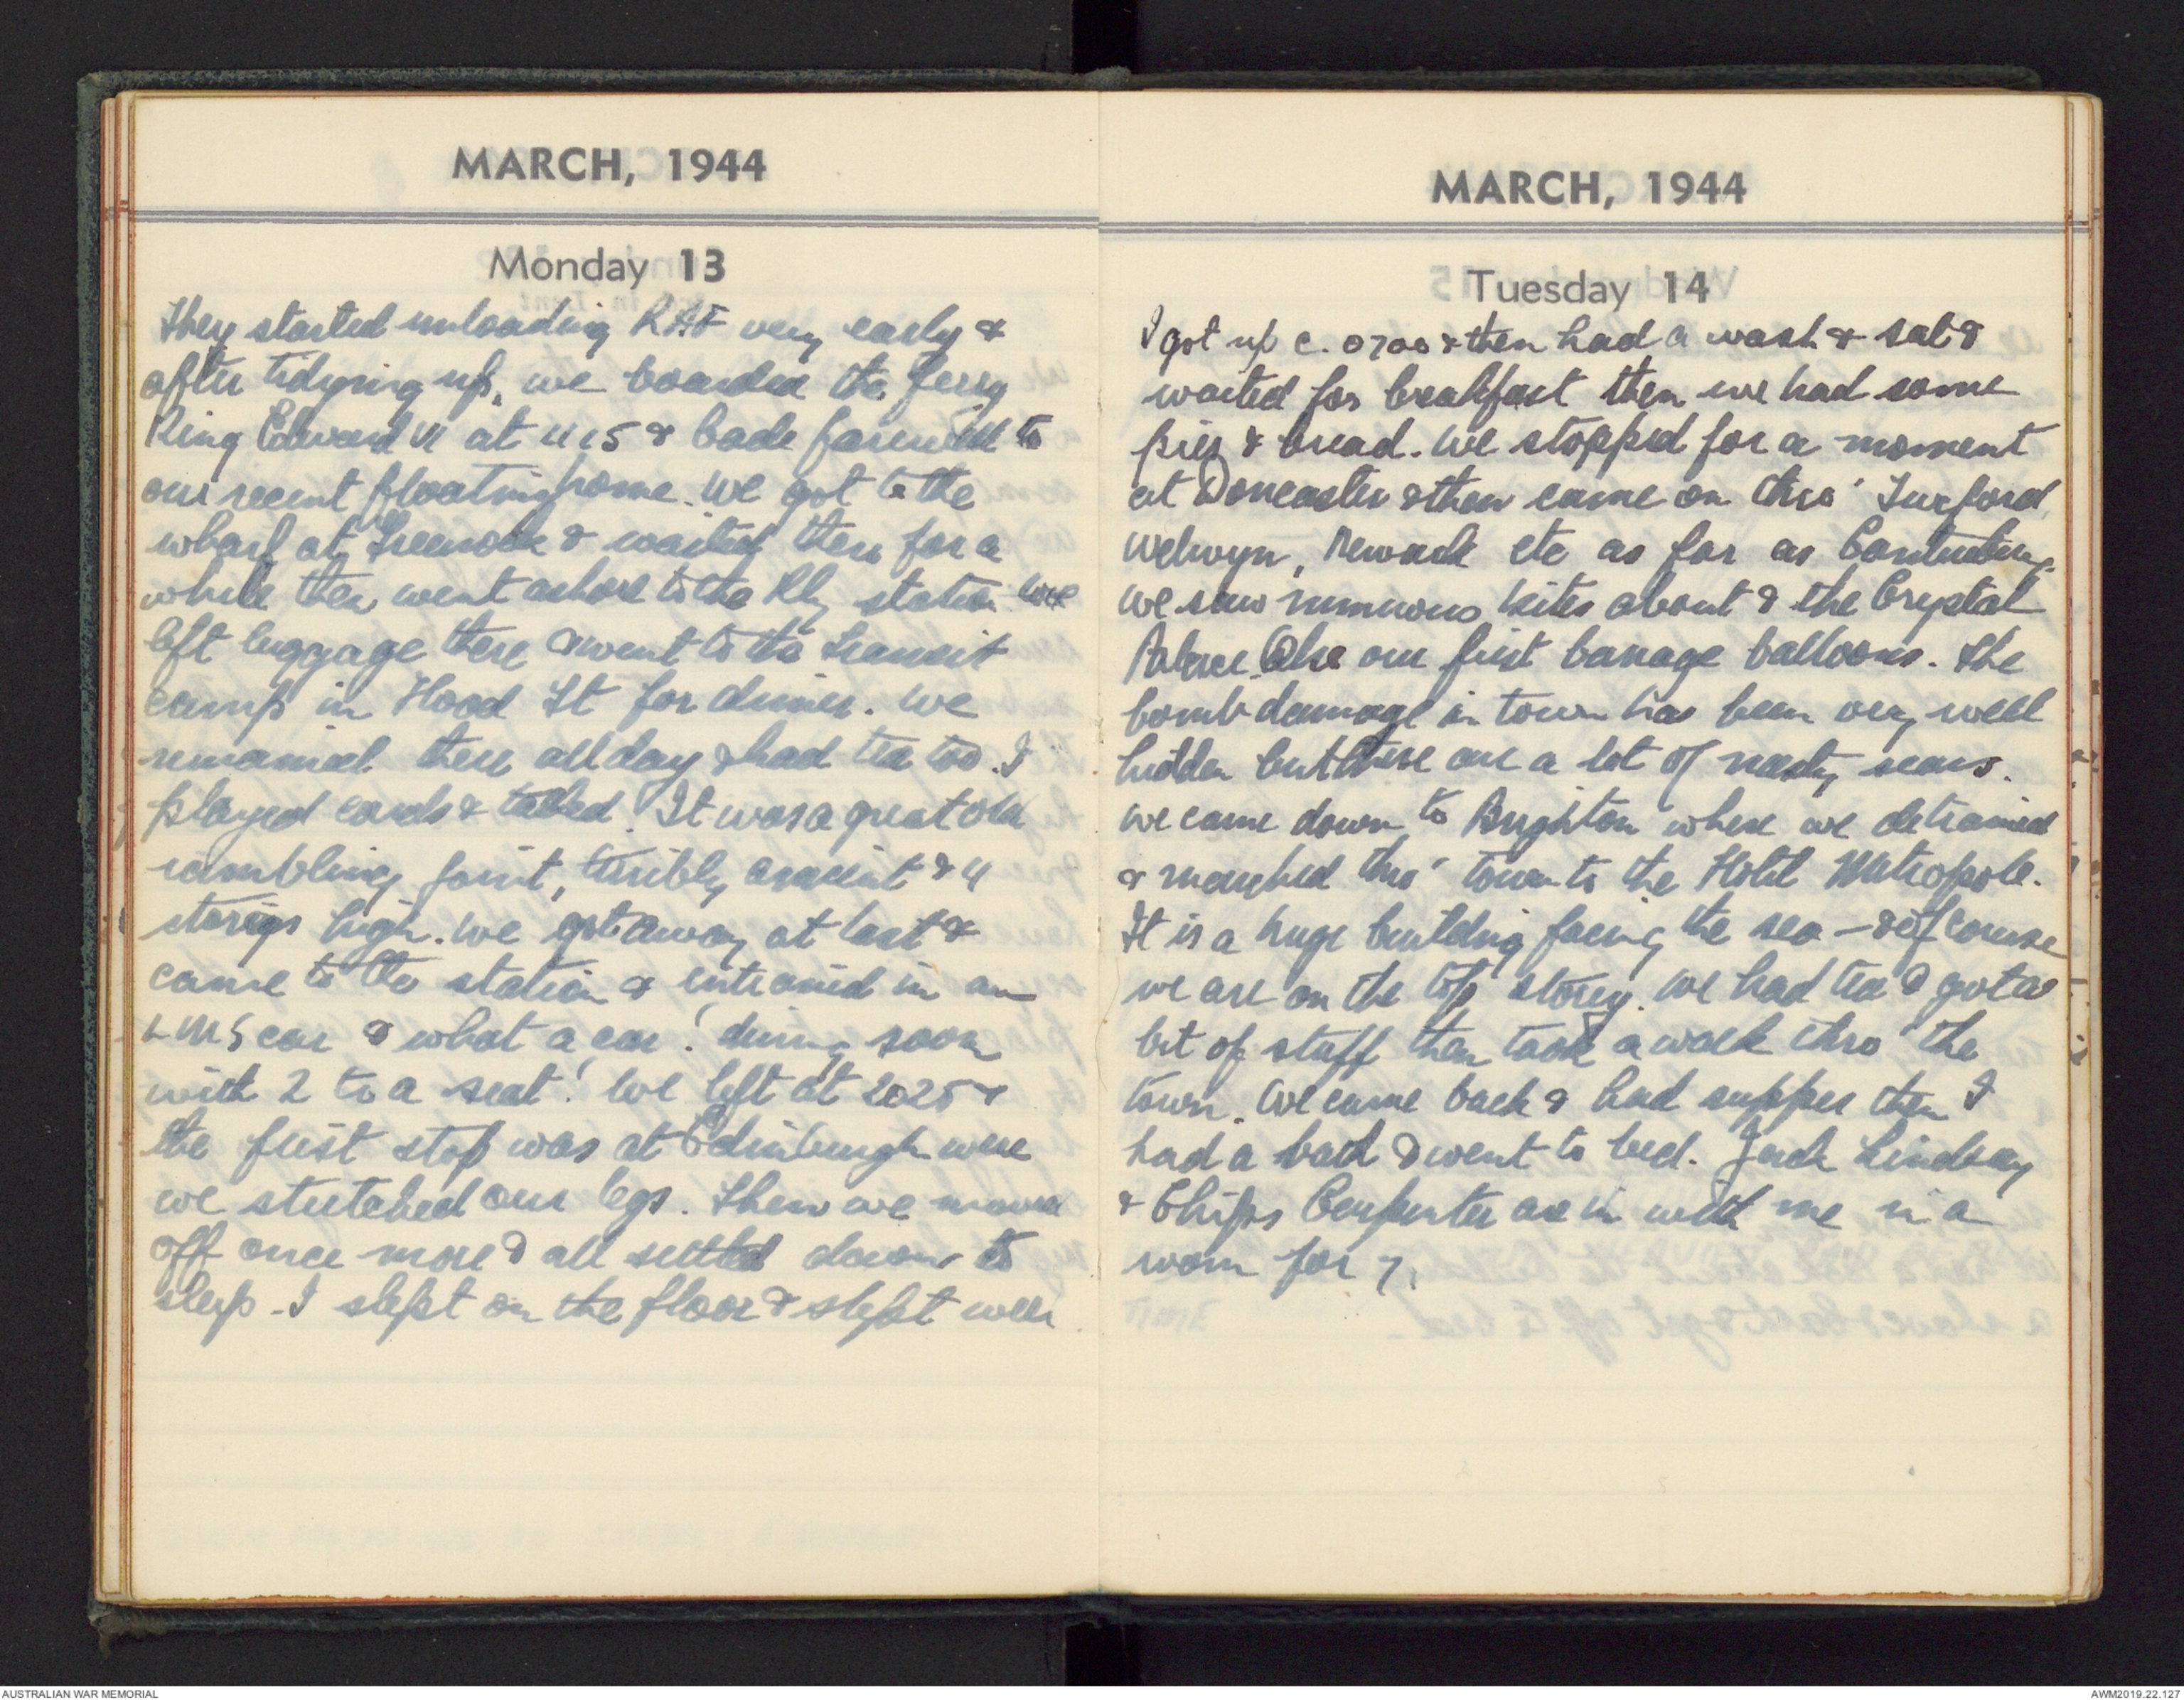 MARCH, 1944
Monday 13
They started unloading RAF very early &
after tidying up, we boarded the ferry
King Edward VI at 1115 & bade farewell to
our recent floating home. We got to the
wharf at Greenock & waited there for a
while then went ashore to the Rly station. We
left luggage there & went to the transit
camp in Hood St for dinner. We
remained there all day & had tea too. I
played cards & talked. It was a great old
rambling joint, terribly ancient & 4
storeys high. We got away at last &
came to the station & entrained in an
LMS car & what a car! dining room
with 2 to a seat! We left at 2025 &
the first stop was at Edinburgh were
we stretched our legs. Then we moved
off once more & all settled down to
sleep - I slept on the floor & slept well
MARCH, 1944
Tuesday 14
I got up c. 0700 & then had a wash & sat &
waited for breakfast then we had some
pies & bread. We stopped for a moment
at Doncaster & then came on thro'
Welwyn, Newark etc as far as
We saw numerous kites about & the Crystal
Palace. Also our first barrage balloons. The
bomb damage in town has been very well
hidden but there are a lot of nasty scars.
We came down to Brighton where we detrained
& marched thro' town to the Hotel Metropole.
It is a huge building facing the sea - & of course
we are on the top storey. We had tea & got a
bit of stuff then took a walk thro' the
town. We came back & had supper then I
had a bath & went to bed. Jack Lindsay
& Chips Carpenter are in with me in a
room for 7.
AUSTRALIAN WAR MEMORIAL
AWM2019.22.127